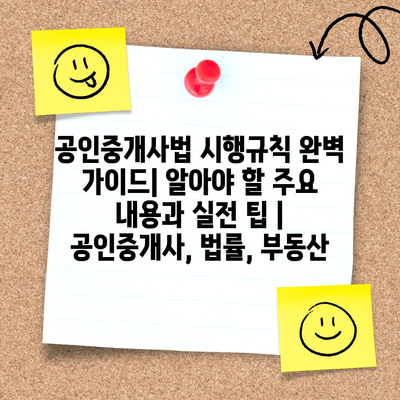 공인중개사법 시행규칙 완벽
가이드| 알아야 할 주요
내용과 실전 팁 |
공인중개사, 법률, 부동산